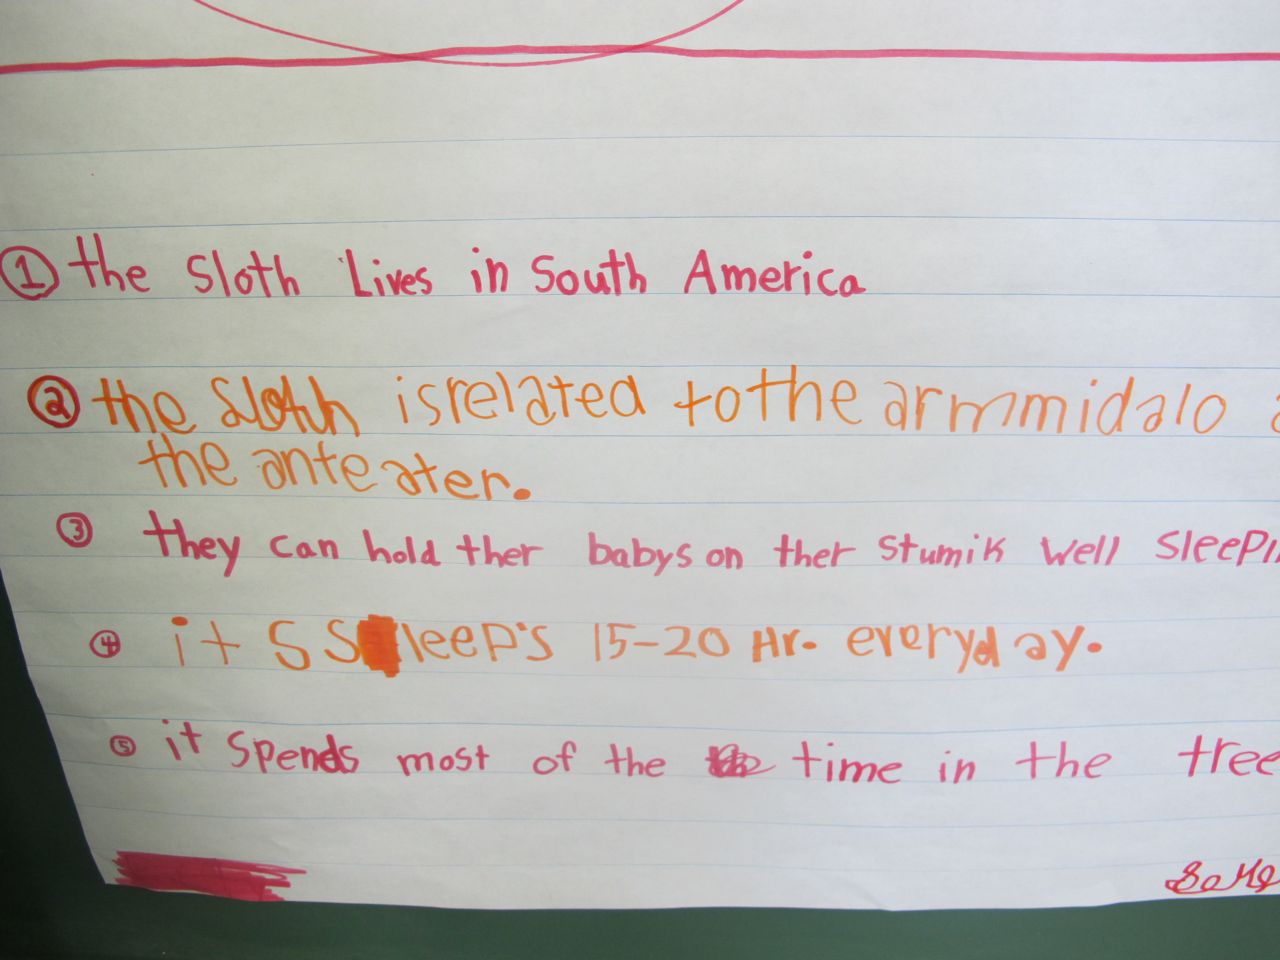 ① the Sloth Lives in South America
② the Sloth is related to the armmidalo a
the anteater.
③ they can hold ther babys on ther Stumik Well Sleepin
④ it S S leep's 15-20 Hr. everyday.
⑤ it Spends most of the time in the tree